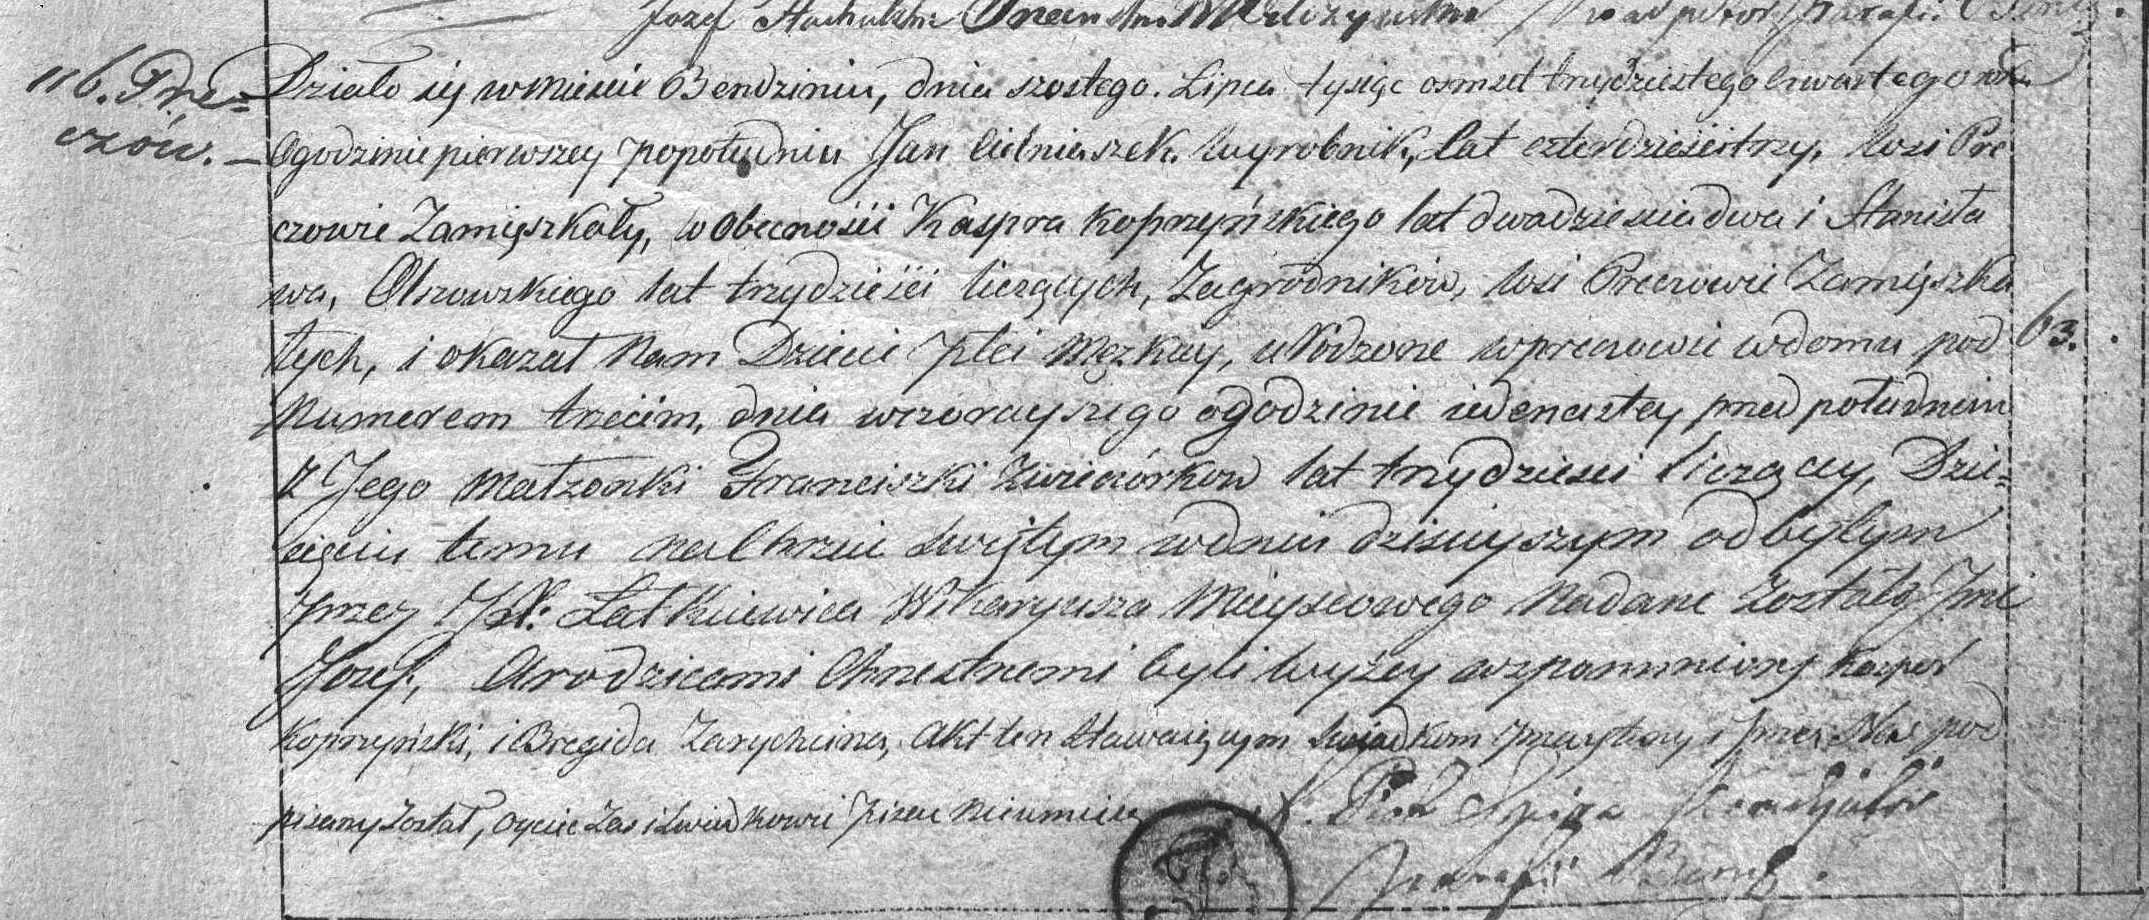 Józef Stachulski
116. Pre=
czów. –
Działo się w Mieście Bendziniu, dnia szostego. Lipca tysiąc osmset trzydziestego czwartego roku
Ogodzinie pierwszey popołudniu Jan Cielniaszek. Wyrobnik, Lat czterdzieścitrzy, wsi Pre
czowie Zamięszkały, w Obecności Kaspra Koprzyńskiego lat dwadziesciadwa i Stanisła
wa, Olszowskiego lat trzydzieści liczących, Zagrodników, wsi Preczowie Zamięszka
łych, i okazał Nam Dziecie płci Męzkiey, uRodzone w preczowie wdomu pod
Numerem trzecim, dnia wczorayszego ogodzinie iedenastey przed południem
z Jego Małzonki Franciszki Zwieciórkow lat trzydziesci liczącey, Dzie=
cięciu temu na Chrzcie Swiętym wdniu dzisieyszym odbytym
przez JX: Latkiewicza Wikaryusza Mieyscowego Nadane Zostało Jmie
Jozef, Arodzicami Chrzestnemi byli wyżey wzpomniony Kasper
Koprzyński, i Bregida Zarychcina, Akt ten Stawaiącym Swiadkom przeczytany i przez Nas pod
pisany Został, oyciec Zas i Swiadkowie pisac nieumieią
X. Piotr
Parafii
63.